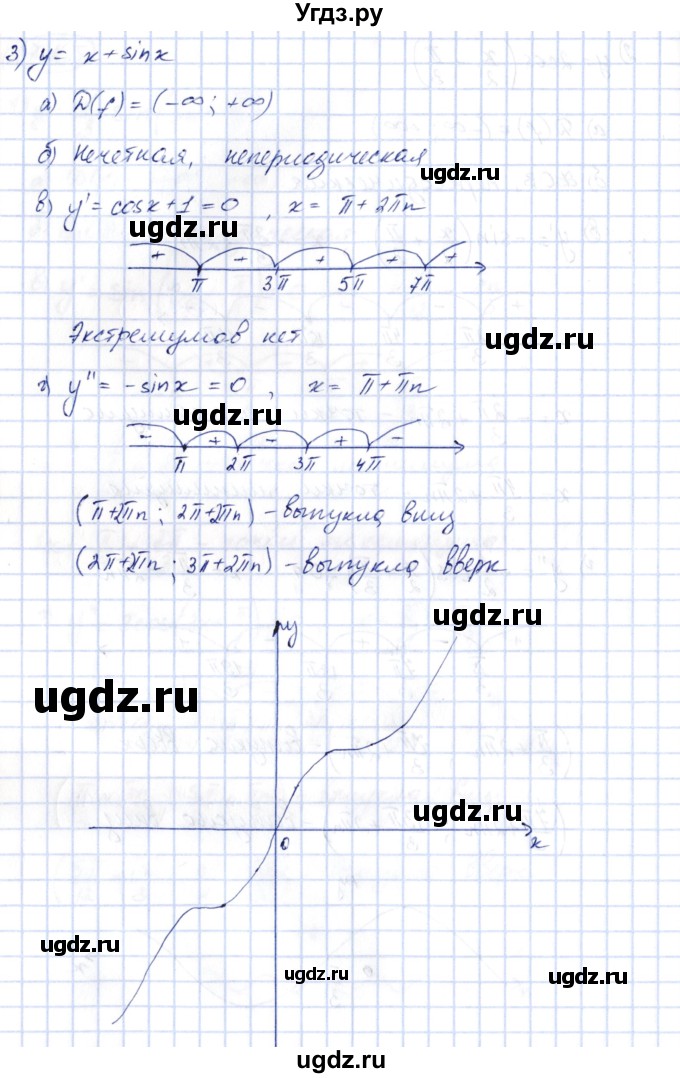 Угдз.ру
3) y = x + sinx
а) D(f) = (-∞; +∞)
б) Нечетная, непериодическая
ugdz.ru
в) y' = cosx + 1 = 0 , x = π + 2πn
ugdz.ru
+ + + + +
π 3π 5π 7π
Экстремумов нет
ugdz.ru
г) y'' = -sinx = 0 , x = π + πn
ugdz.ru
- + - + -
π 2π 3π 4π
(π+2πn ; 2π+2πn) - выпукла вниз
(2π+2πn ; 3π+2πn) - выпукла вверх
ugdz.ru
y
ugdz.ru
ugdz.ru
0 x
ugdz.ru
ugdz.ru
ugdz.ru
ugdz.ru